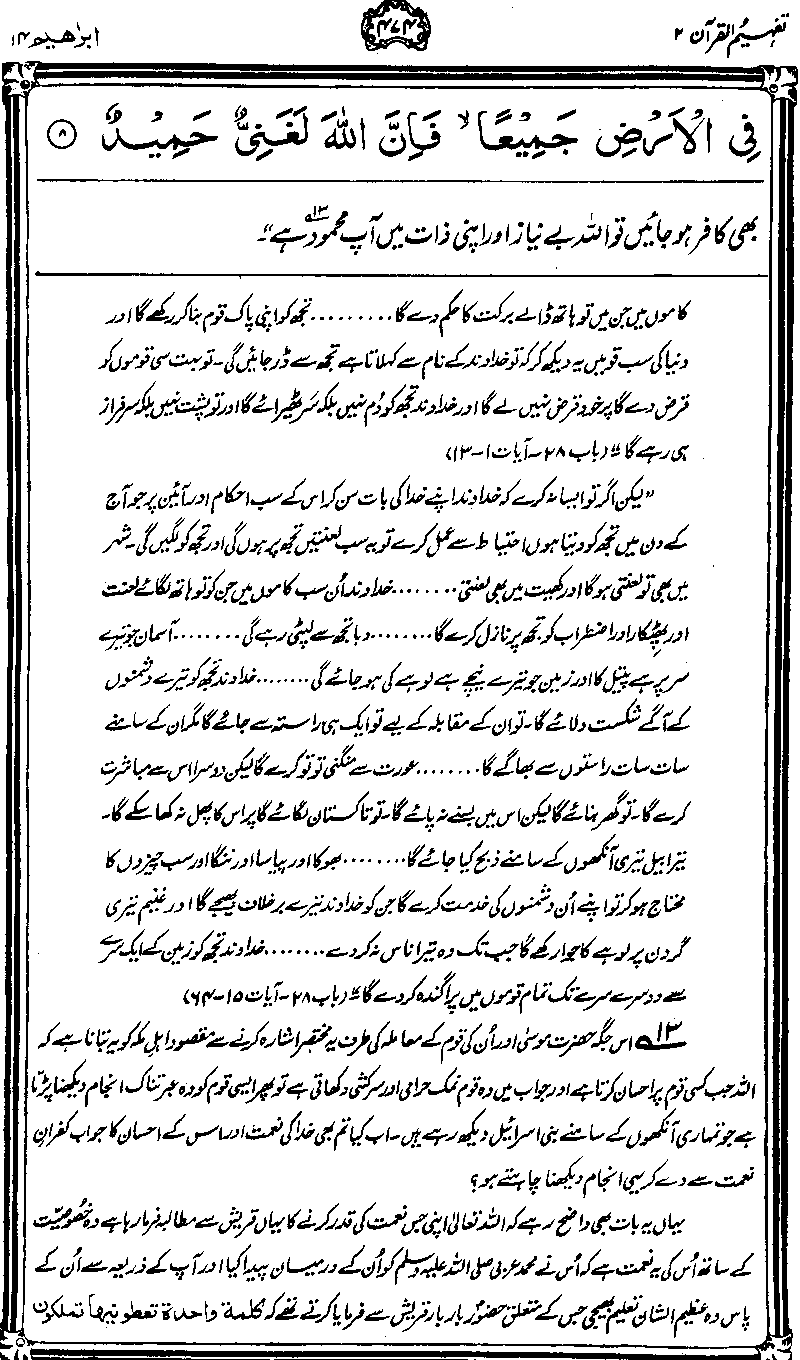 تفہیم القرآن ۲
۴۷۴
ابراھیم ۱۴
فِی الْاَرْضِ جَمِیْعًا ۙ فَاِنَّ اللّٰهَ لَغَنِیٌّ حَمِیْدٌ ۝۸
بھی کافر ہو جائیں تو اللہ بے نیاز اور اپنی ذات میں آپ محمود ہے۱۳۔"
کاموں میں جن میں تو ہاتھ ڈالے برکت کا حکم دے گا.......... تجھ کو اپنی پاک قوم بنا کر رکھے گا اور
دنیا کی سب قومیں یہ دیکھ کر کہ تو خداوند کے نام سے کہلاتا ہے تجھ سے ڈر جائیں گی۔ تو بہت سی قوموں کو
قرض دے گا پر خود قرض نہیں لے گا اور خداوند تجھ کو دُم نہیں بلکہ سَر ٹھیرائے گا اور تو پشت نہیں بلکہ سرفراز
ہی رہے گا" (باب ۲۸۔ آیات ۱۔۱۳)
"لیکن اگر تو ایسا نہ کرے کہ خداوند اپنے خدا کی بات سن کر اس کے سب احکام اور آئین پر جو آج
کے دن میں تجھ کو دیتا ہوں احتیاط سے عمل کرے تو یہ سب لعنتیں تجھ پر ہوں گی اور تجھ کو لگیں گی۔ شہر
میں بھی تو لعنتی ہوگا اور کھیت میں بھی لعنتی........ خداوند اُن سب کاموں میں جن کو تو ہاتھ لگائے لعنت
اور پھٹکار اور اضطراب کو تجھ پر نازل کرے گا........ وبا تجھ سے لپٹی رہے گی........ آسمان جو تیرے
سر پر ہے پیتل کا اور زمین جو تیرے نیچے ہے لوہے کی ہو جائے گی........ خداوند تجھ کو تیرے دشمنوں
کے آگے شکست دلائے گا۔ تو ان کے مقابلہ کے لیے تو ایک ہی راستہ سے جائے گا مگر ان کے سامنے
سات سات راستوں سے بھاگے گا........ عورت سے منگنی تو تو کرے گا لیکن دوسرا اس سے مباشرت
کرے گا۔ تو گھر بنائے گا لیکن اس میں بسنے نہ پائے گا۔ تو تاکستان لگائے گا پر اس کا پھل نہ کھا سکے گا۔
تیرا بیل تیری آنکھوں کے سامنے ذبح کیا جائے گا........ بھوکا اور پیاسا اور ننگا اور سب چیزوں کا
محتاج ہو کر تو اپنے اُن دشمنوں کی خدمت کرے گا جن کو خداوند تیرے برخلاف بھیجے گا اور غنیم تیری
گردن پر لوہے کا جوا رکھے گا جب تک وہ تیرا ناس نہ کر دے........ خداوند تجھ کو زمین کے ایک سرے
سے دوسرے سرے تک تمام قوموں میں پراگندہ کر دے گا" (باب ۲۸۔ آیات ۱۵۔۶۴)
۱۳ اس جگہ حضرت موسیٰ اور اُن کی قوم کے معاملہ کی طرف یہ مختصر اشارہ کرنے سے مقصود اہل مکہ کو یہ بتانا ہے کہ
اللہ جب کسی قوم پر احسان کرتا ہے اور جواب میں وہ قوم نمک حرامی اور سرکشی دکھاتی ہے تو پھر ایسی قوم کو وہ عبرتناک انجام دیکھنا پڑتا
ہے جو تمہاری آنکھوں کے سامنے بنی اسرائیل دیکھ رہے ہیں۔ اب کیا تم بھی خدا کی نعمت اور اس کے احسان کا جواب کفرانِ
نعمت سے دے کر یہی انجام دیکھنا چاہتے ہو؟
یہاں یہ بات بھی واضح رہے کہ اللہ تعالیٰ اپنی جس نعمت کی قدر کرنے کا یہاں قریش سے مطالبہ فرما رہا ہے وہ خصوصیّت
کے ساتھ اُس کی یہ نعمت ہے کہ اُس نے محمد عربی صلی اللہ علیہ وسلم کو اُن کے درمیان پیدا کیا اور آپ کے ذریعہ سے اُن کے
پاس وہ عظیم الشان تعلیم بھیجی جس کے متعلق حضورؐ بار بار قریش سے فرمایا کرتے تھے کہ کلمة واحدة تعطونیها تملکون